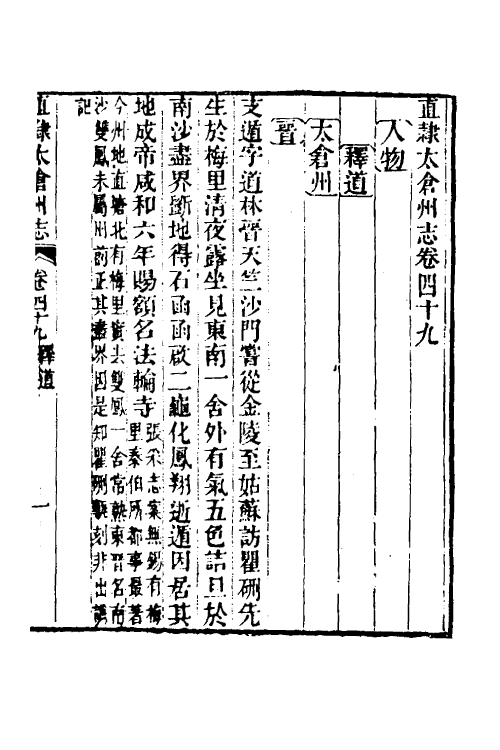 直隸太倉州志卷四十九
人物
釋道
太倉州
晉
支遁字道林晉天竺沙門嘗從金陵至姑蘇訪瞿硎先
生於梅里清夜露坐見東南一舍外有氣五色詰旦於
南沙盡界斸地得石函函啟二龜化鳳翔逝遁因居其
地成帝咸和六年賜額名法輪寺張采志案無錫有梅
里泰伯所都事最著
今州地直塘北有梅里實去雙鳳一舍常熟東晉名南
沙雙鳳未屬州前正其盡界因是知瞿硎
刻非出
記
直隸太倉州志 卷四十九 釋道 一